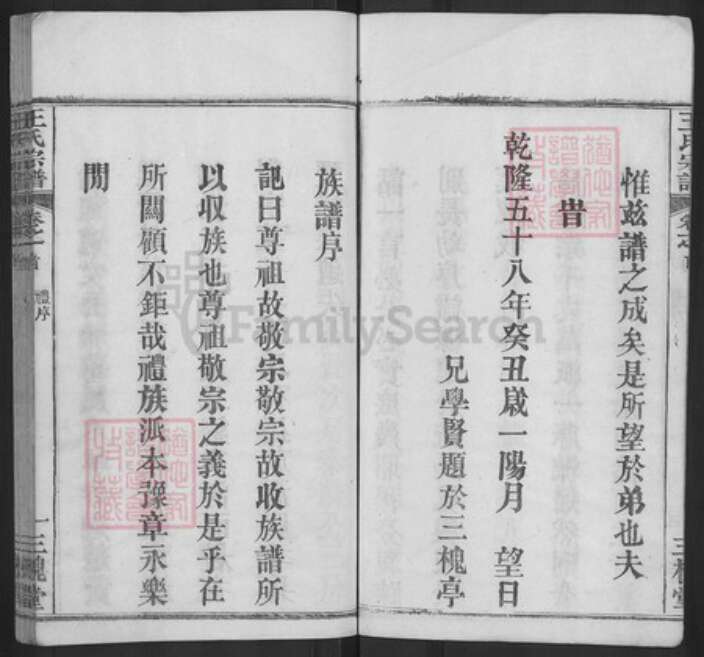 惟茲譜之成矣是所望於弟也夫
旹
乾隆五十八年癸丑歲一陽月 望日
兄學賢題於三槐亭
族譜序
記曰尊祖故敬宗敬宗故收族譜所
以收族也尊祖敬宗之義於是乎在
所關顧不鉅哉禮族派本豫章永樂
閒
王氏宗譜
卷之首
禮序
一
三槐堂
王氏宗譜
卷之首
三槐堂
FamilySearch